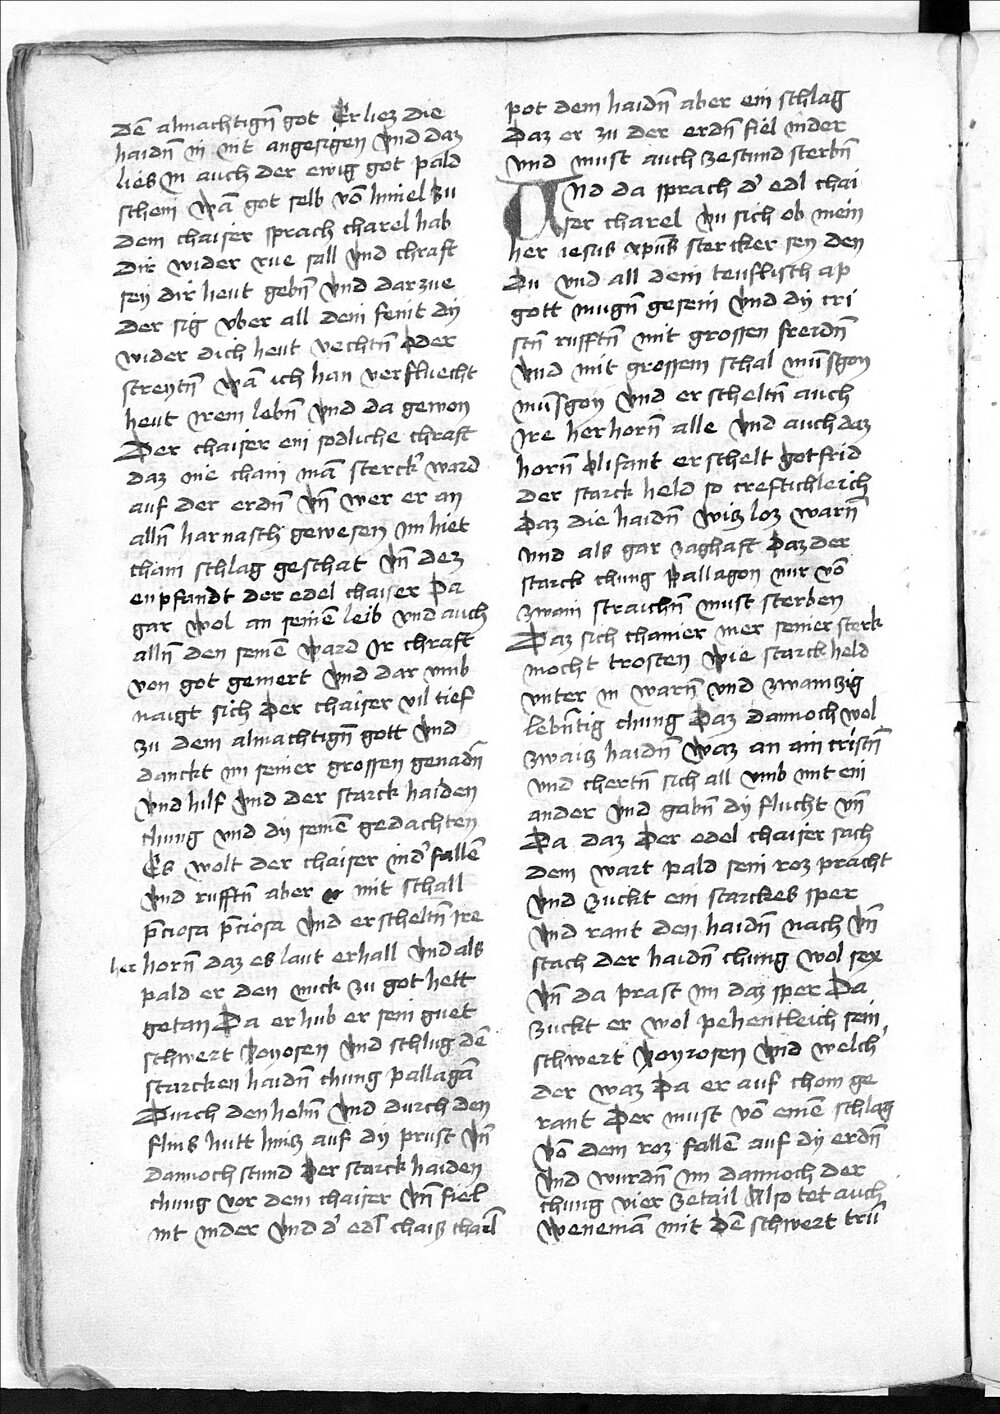 dē almachtigñ got Er liez die
haidñ in nit angesigen Vnd daz
lies in auch der ewig got pald
schein Wā got selb vō himel zu
dem chaiser sprach charel hab
dir wider rue sall Vnd chraft
sey dir heut gebñ Vnd dar zue
der sig vber all dein feint dÿ
wider dich heut vechtñ Oder
streytñ Wā ich han verfluecht
heut irem lebñ Vnd da gewon
Der chaiser ein sodliche chraft
daz nie chain mā sterck' ward
auf der erdñ Vñ wer er an
allñ harnasch gewesen im hiet
chain schlag geschat Vñ dez
enpfandt der edel chaiser Da
gar Wol an seinē leib vnd auch
allñ den seinē Ward Ir chraft
von got gemert Vnd dar vmb
naigt sich Der chaiser vil tief
zu dem almachtigñ gott Vnd
danckt im seiner grossen genadñ
Vnd hilf Vnd der starck haiden
chung vnd dÿ seinē gedachten
Es wolt der chaiser nid' fallē
Vnd rufftñ aber mit schall
p̄ciosa p̄ciosa Vnd erscheltñ ire
her hornñ daz es laut erhall Vnd als
pald er den nick zu got hett
getan Da er hub er sein guet
schwert Joyosen Vnd schlug dē
starcken haidñ chung pallagā
Durch den helm Vnd durch den
flins hutt hinz auf dÿ prust Vñ
dannoch stund Der starck haiden
chung vor dem chaiser Vñ fiel
nit nider Vnd d' edl chaiß charl
pot dem haidñ aber ein schlag
Daz er zu der erdñ fiel nider
vnd must auch zestund sterbñ
Und da sprach d' edl chai
ser charel nu sich ob mein
her iesus xpūs stercker sey den
Du vnd all dein teuflisch ap
gott mugñ gesein Vnd dÿ cri
stñ rufftñ mit grossen freidñ
Vnd mit grossem schal mūsgoy
mūsgoy Vnd er scheltñ auch
ire herhornñ alle Vnd auch daz
hornñ Olifant erschelt gotfrid
der starck held so creftichleich
Daz die haidñ Witz loz warñ
vnd als gar zaghaft Daz der
starck chung Pallagon nur vō
zwain straichñ must sterben
Daz sich chainer mer seiner sterk
mocht trosten Wie starck held
vnter in warñ vnd zwaintzig
lebñtig chung Daz dannoch wol
zwaiz haidñ Waz an ain cristñ
vnd chertñ sich all vmb mit ein
ander Vnd gabñ dÿ flucht vñ
Da daz Der edel chaiser sach
dem wart pald sein roz pracht
Vnd zuckt ein starckes sper
Vnd rant den haidñ nach Vñ
stach der haidñ chung wol sex
Vñ da prast im daz sper Da
zuckt er wol pehentleich sein
schwert Joyrosen Vnd welch
der waz Da er auf chom ge
rant Der must vō einē schlag
Vō dem roz fallē auf dÿ erdñ
Vnd wurdñ im dannoch der
chung vier zetail Also tet auch
Wenemā mit dē schwert trū